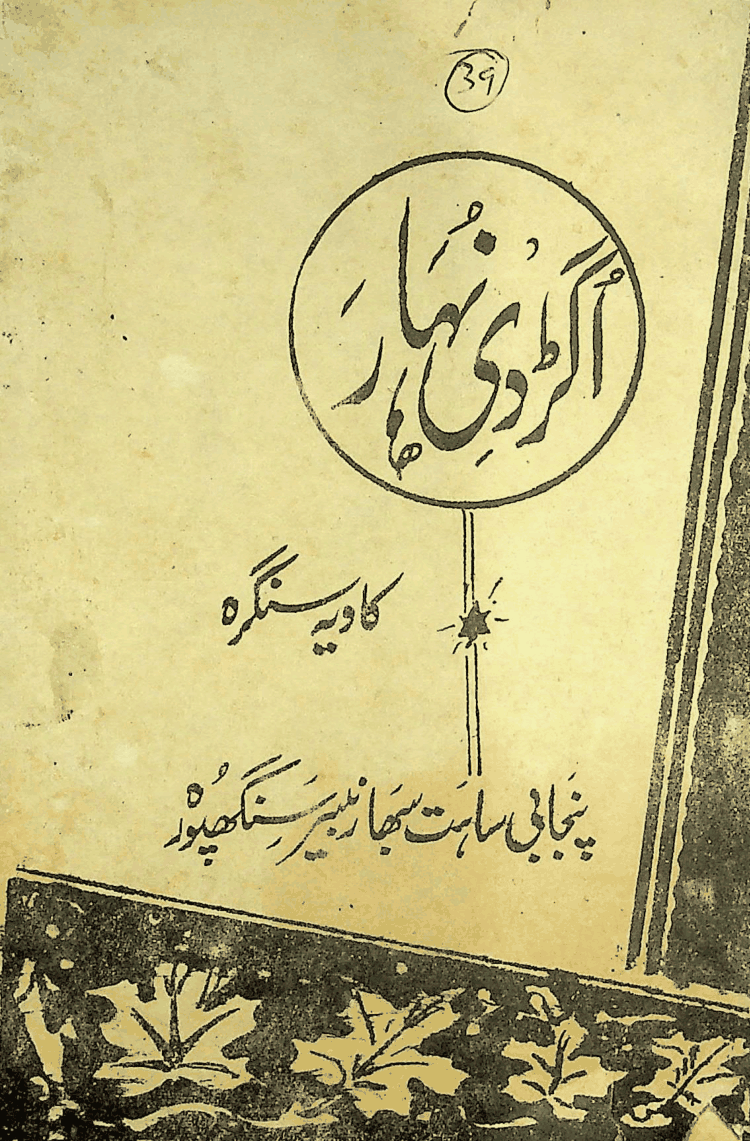 39
اُگڑدی نُہار
کاویہ سنگرہ
پنجابی ساہت سبھا رنبیر سنگھ پُورہ